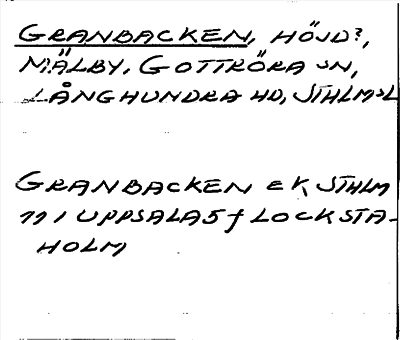 GRANBACKEN, HÖJD?,
MÄLBY, GOTTRÖRA SN,
LÅNGHUNDRA HD, STHLMSL
GRANBACKEN EK STHLM
111 UPPSALA 5 f LOCKSTA-
HOLM